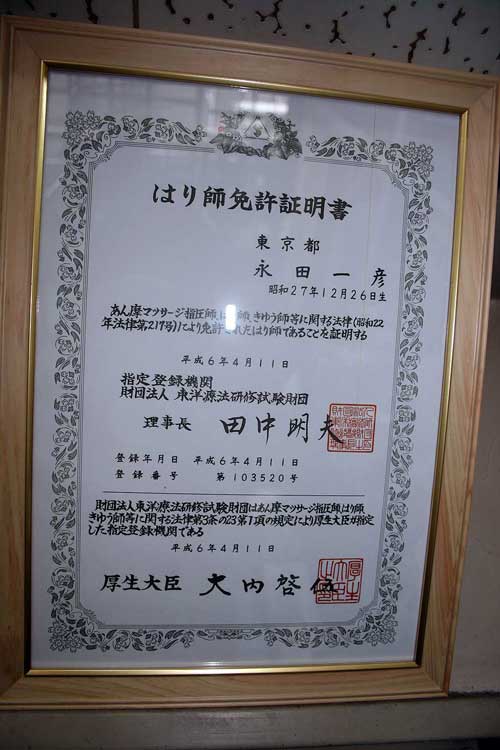 はり師免許証明書
東京都
永田一彦
昭和27年12月26日生
あん摩マツサージ指圧師、はり師、きゆう師等に関する法律(昭和22
年法律第217号)により免許されたはり師であることを証明する
平成6年4月11日
指定登録機関
財団法人 東洋療法研修試験財団
理事長 田中明夫
登録年月日 平成6年4月11日
登録番号 第103520号
財団法人東洋療法研修試験財団はあん摩マツサージ指圧師、はり師、
きゆう師等に関する法律第3条の23第1項の規定により厚生大臣が指定
した指定登録機関である
平成6年4月11日
厚生大臣 大内啓伍